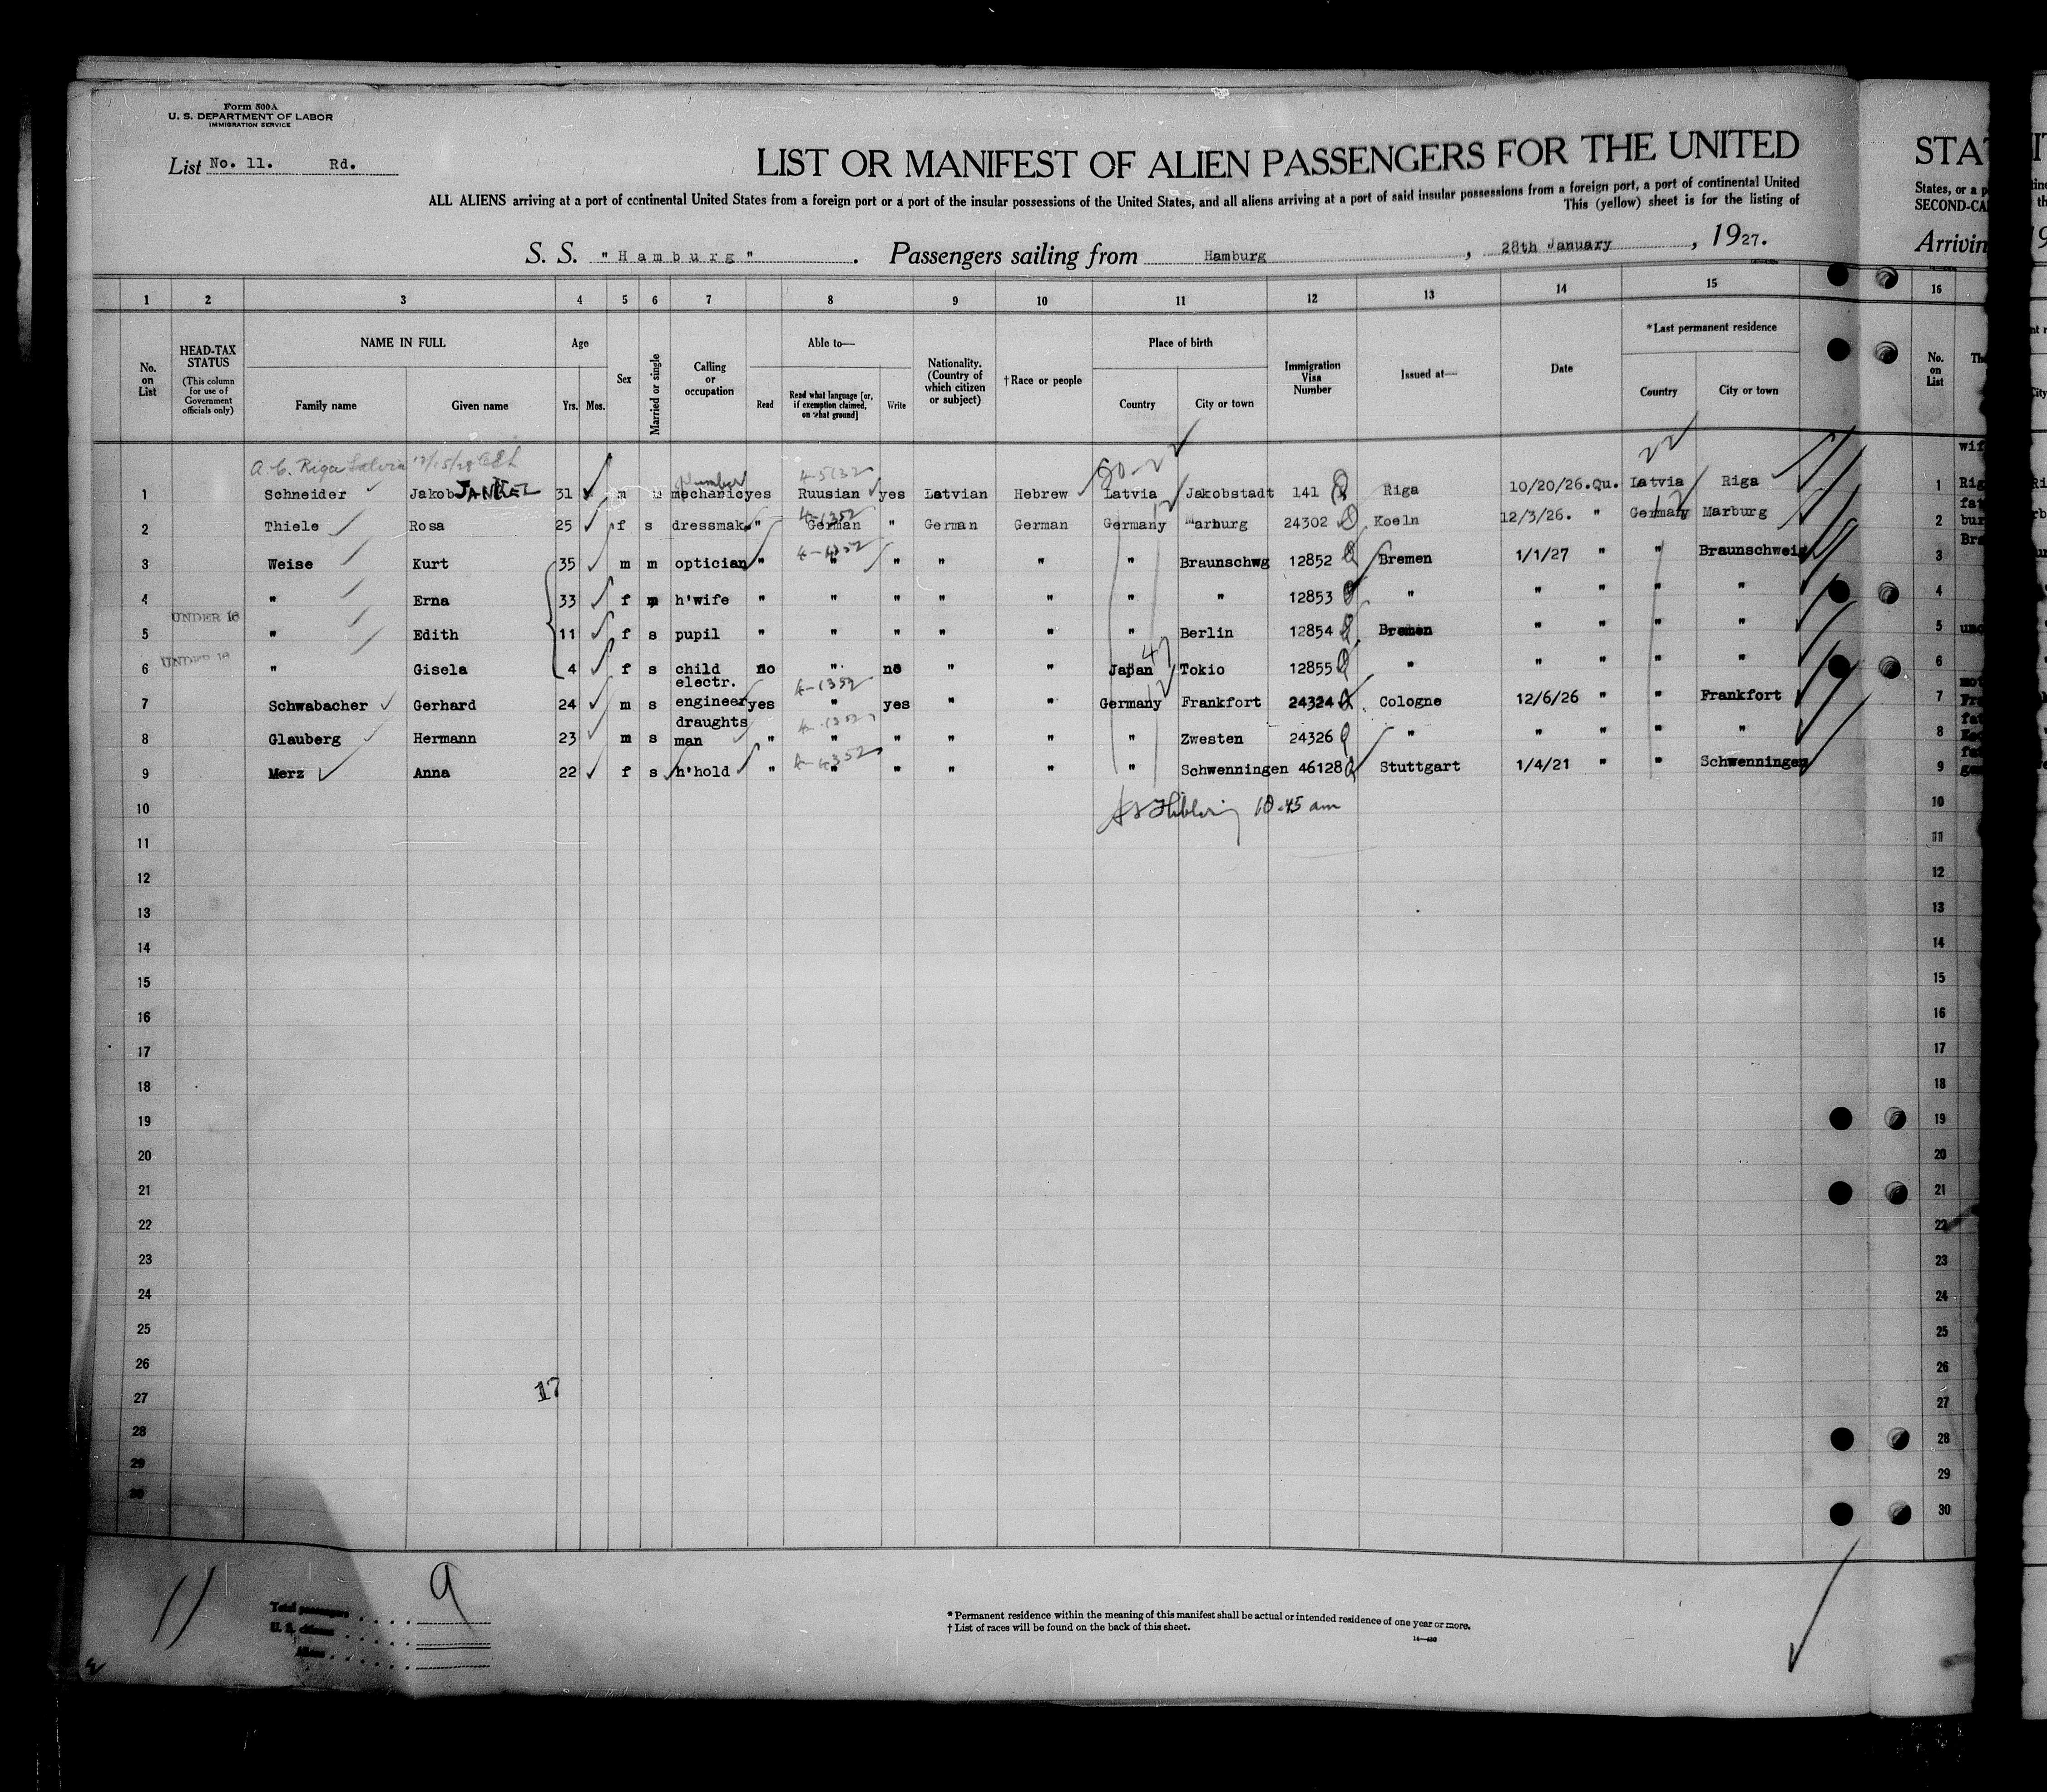 Form 500A
U. S. DEPARTMENT OF LABOR
IMMIGRATION SERVICE
List No. 11. Rd.
LIST OR MANIFEST OF ALIEN PASSENGERS FOR THE UNITED
ALL ALIENS arriving at a port of continental United States from a foreign port or a port of the insular possessions of the United States, and all aliens arriving at a port of said insular possessions from a foreign port, a port of continental United
This (yellow) sheet is for the listing of
S. S. "Hamburg". Passengers sailing from Hamburg, 28th January, 1927.
STA
States, or a p
SECOND-CA
Arrivin
1 2 3 4 5 6 7 8 9 10 11 12 13 14 15 16
No. on List
HEAD-TAX STATUS (This column for use of Government officials only)
NAME IN FULL
Family name Given name
Age
Yrs. Mos.
Sex
Married or single
Calling or occupation
Able to—
Read Read what language [or, if exemption claimed, on what ground] Write
Nationality. (Country of which citizen or subject)
†Race or people
Place of birth
Country City or town
Immigration Visa Number
Issued at—
Date
*Last permanent residence
Country City or town
No. on List
A. C. Riga Latvia
plumber 4-5132 22
1 Schneider Jakob JANKEL 31 m m mechanic yes Ruusian yes Latvian Hebrew Latvia Jakobstadt 141 Riga 10/20/26. Qu. Latvia Riga 1
4-1352
2 Thiele Rosa 25 f s dressmak. " German " German German Germany Marburg 24302 Koeln 12/3/26. " Germany Marburg 2
3 Weise Kurt 35 m m optician " " " " " " Braunschwg 12852 Bremen 1/1/27 " " Braunschweig 3
4 " Erna 33 f m h'wife " " " " " " " 12853 " " " " " 4
UNDER 16
5 " Edith 11 f s pupil " " " " " " Berlin 12854 Bremen " " " " 5
UNDER 16
6 " Gisela 4 f s child no " no " " Japan 47 Tokio 12855 " " " " " 6
7 Schwabacher Gerhard 24 m s electr. engineer yes " yes " " Germany Frankfort 24324 Cologne 12/6/26 " " Frankfort 7
8 Glauberg Hermann 23 m s draughts man " " " " " " Zwesten 24326 " " " " " 8
9 Merz Anna 22 f s h'hold " " " " " " Schwenningen 46128 Stuttgart 1/4/21 " " Schwenningen 9
10 10.45 am 10
11 11
12 12
13 13
14 14
15 15
16 16
17 17
18 18
19 19
20 20
21 21
22 22
23 23
24 24
25 25
26 26
27 17 27
28 28
29 29
30 30
11
Total passengers 9
U. S. citizens
Aliens
* Permanent residence within the meaning of this manifest shall be actual or intended residence of one year or more.
† List of races will be found on the back of this sheet.